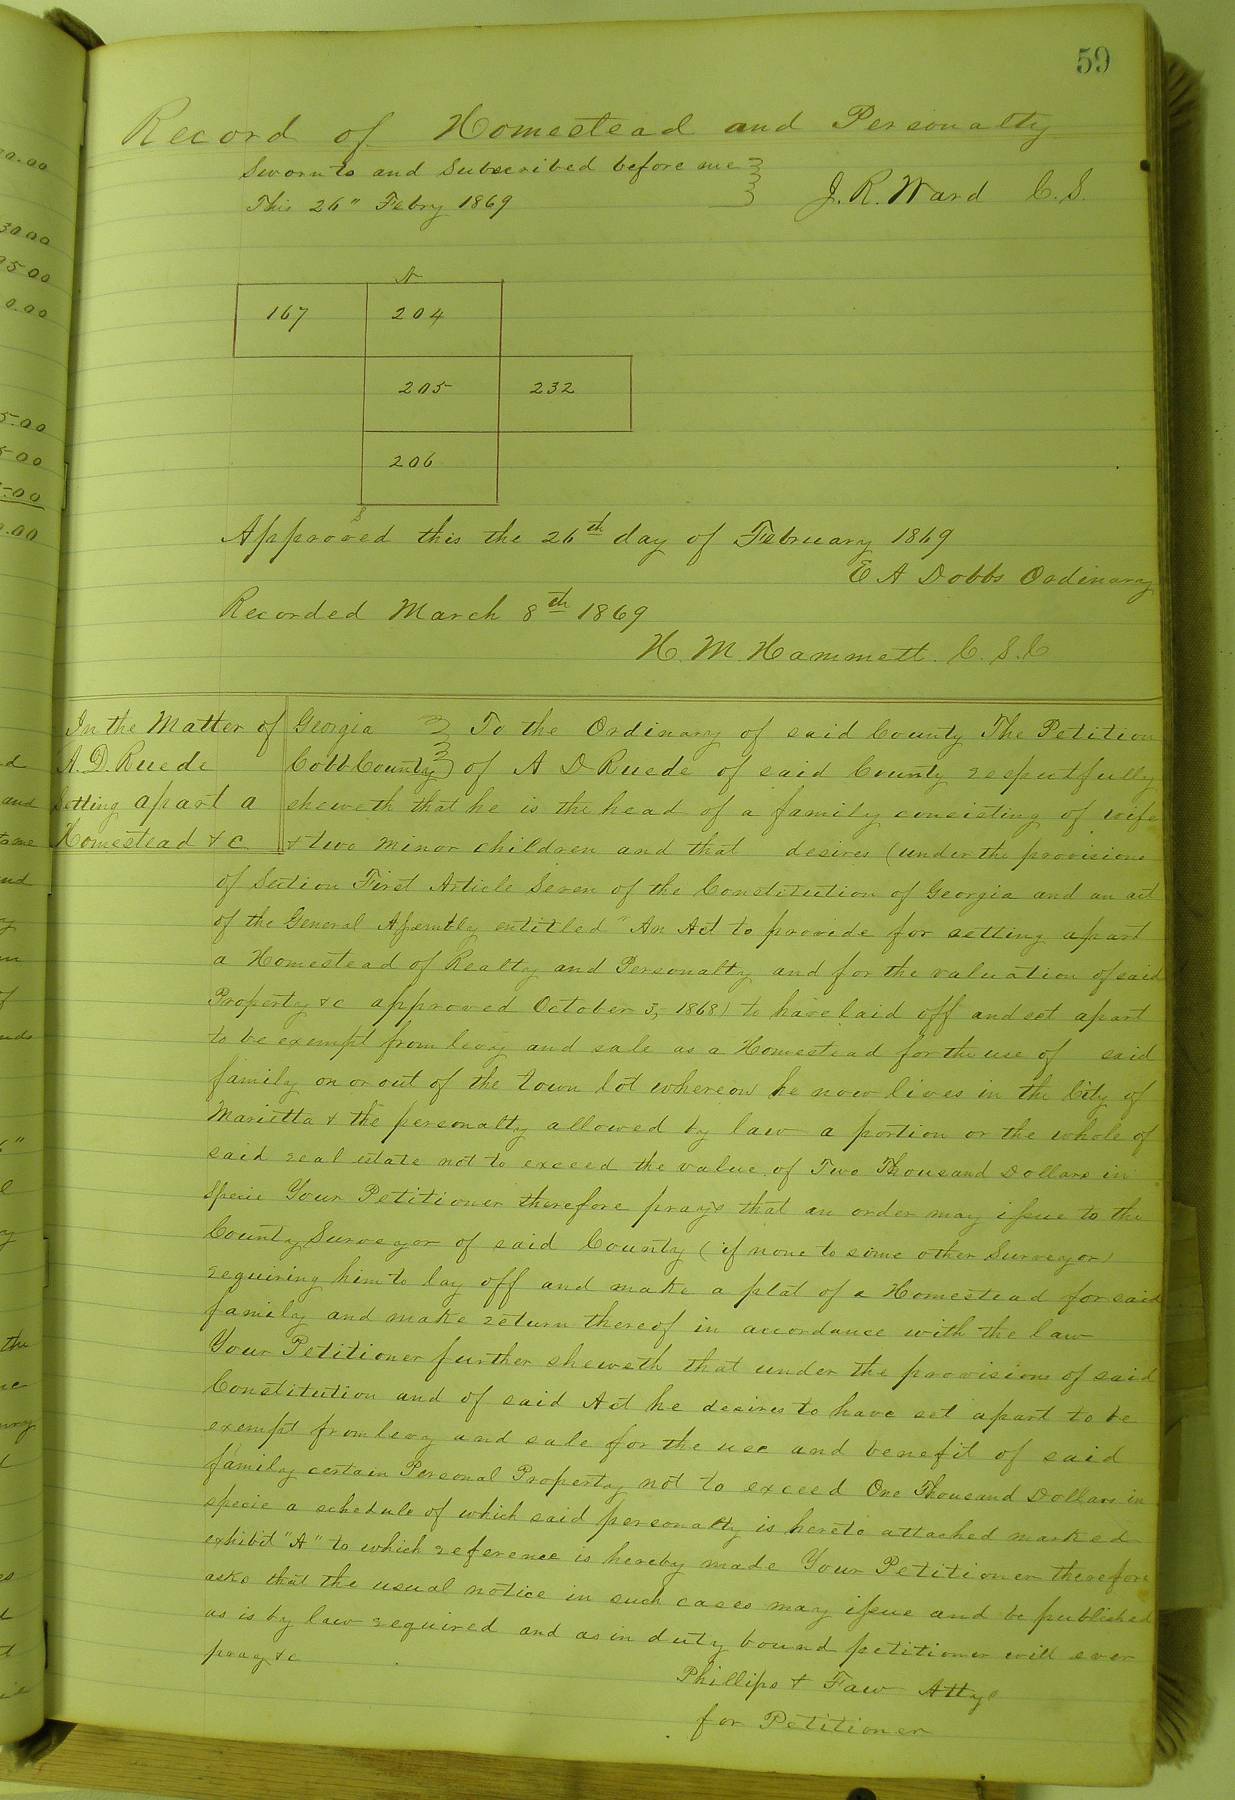 59
Record of Homestead and Personalty
Sworn to and Subscribed before me
This 26" Febry 1869
J. R. Ward C. S.
N
167 204
205 232
206
S
Approved this the 26th day of February 1869
E A Dobbs Ordinary
Recorded March 8th 1869
H. M. Hammett. C. S. C
In the Matter of
A. D. Ruede
Setting apart a
Homestead & c
Georgia
Cobb County
To the Ordinary of said County The Petition
of A D Ruede of said County respectfully
sheweth that he is the head of a family consisting of wife
& two minor children and that desires (under the provisions
of Section First Article Seven of the Constitution of Georgia and an act
of the General Assembly entitled "An Act to provide for setting apart
a Homestead of Realty and Personalty and for the valuation of said
Property & c approved October 3, 1868) to have laid off and set apart
to be exempt from levy and sale as a Homestead for the use of said
family on or out of the town lot whereon he now lives in the City of
Marietta & the personalty allowed by law a portion or the whole of
said real estate not to exceed the value of Two Thousand Dollars in
Specie Your Petitioner therefore prays that an order may issue to the
County Surveyor of said County (if none to some other Surveyor)
requiring him to lay off and make a plat of a Homestead for said
family and make return thereof in accordance with the law
Your Petitioner further sheweth that under the provisions of said
Constitution and of said Act he desires to have set apart to be
exempt from levy and sale for the use and benefit of said
family certain Personal Property not to exceed One Thousand Dollars in
specie a schedule of which said personalty is hereto attached marked
exhibit "A" to which reference is hereby made Your Petitioner therefore
asks that the usual notice in such cases may issue and be published
as is by law required and as in duty bound petitioner will ever
pray & c
Phillips & Faw Attys
for Petitioner